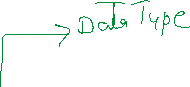 Data Type